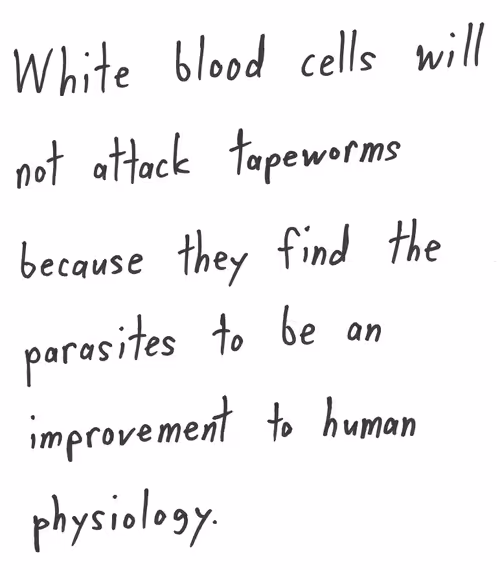 White blood cells will
not attack tapeworms
because they find the
parasites to be an
improvement to human
physiology.